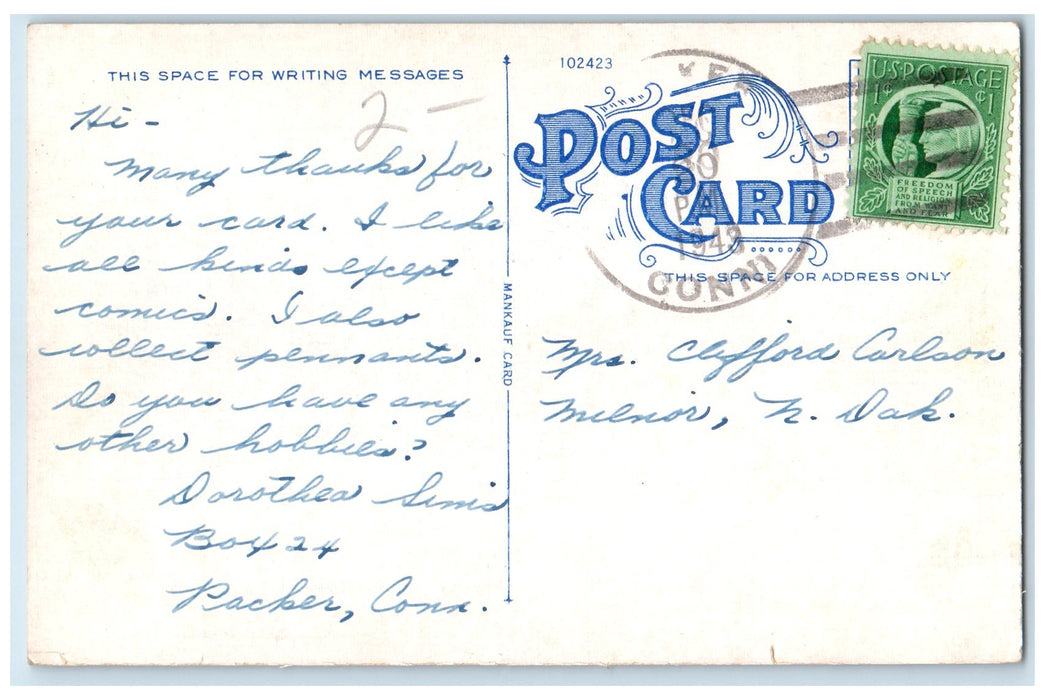 THIS SPACE FOR WRITING MESSAGES
2 -
Hi -
Many thanks for
your card. I like
all kinds except
comics. I also
collect pennants.
Do you have any
other hobbies?
Dorothea Sims
Box 24
Packer, Conn.
MANKAUF CARD
102423
POST
CARD
30
PM
1943
CONN
U.S. POSTAGE
1¢ ¢1
FREEDOM
OF SPEECH
AND RELIGION
FROM WANT
AND FEAR
THIS SPACE FOR ADDRESS ONLY
Mrs. Clifford Carlson
Milnor, N. Dak.